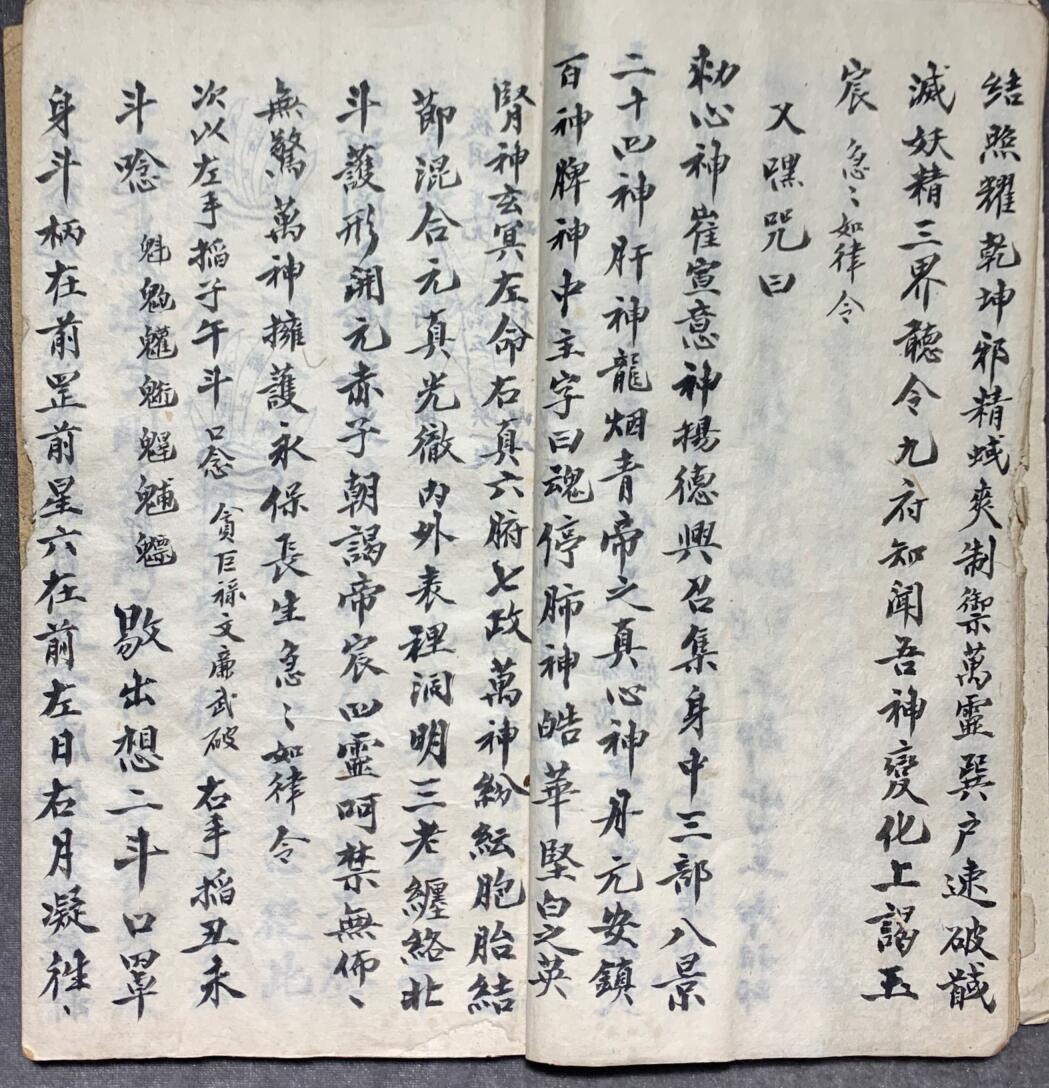 結照耀乾坤邪精蜮爽制禦萬靈巽户速破馘
滅妖精三界聽令九府知聞吾神變化上謁玉
宸急〻如律令
又嘿咒曰
勑心神崔宣意神楊德興召集身中三部八景
二十四神肝神龍烟青帝之真心神丹元安鎮
百神脾神中主字曰魂停肺神皓華堅白之英
腎神玄冥左命右真六腑七政萬神紛紜胞胎結
節混合元真光徹内外表裡洞明三老纏絡北
斗護形開元赤子朝謁帝宸四靈呵禁無怖〻
無驚萬神擁護永保長生急〻如律令
次以左手搯子午斗口念貪巨祿文廉武破右手搯丑未
斗唸魁𩲃䰢魓𩳐魒出想二斗口罩
身斗柄在前罡前星六在前左日右月凝〻